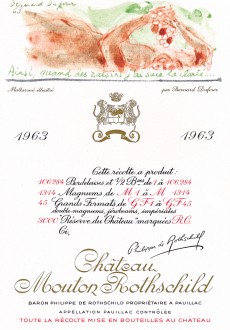 Bernard Dufour
Ainsi, quand des raisins j'ai sucé la clarté...
Mallarmé illustré par Bernard Dufour
1963 1963
Cette récolte a produit:
106.284 Bordelaises et 1/2 Bses de 1 à 106.284
1314 Magnums de M 1 à M 1314
45 Grands Formats de G F 1 à G F 45
double magnums, jéroboams, impériales
3000 "Réserve du Château" marquées R.C.
Ci,
Philippe de Rothschild
Château
Mouton Rothschild
BARON PHILIPPE DE ROTHSCHILD PROPRIÉTAIRE A PAUILLAC
APPELLATION PAUILLAC CONTRÔLÉE
TOUTE LA RÉCOLTE MISE EN BOUTEILLES AU CHÂTEAU